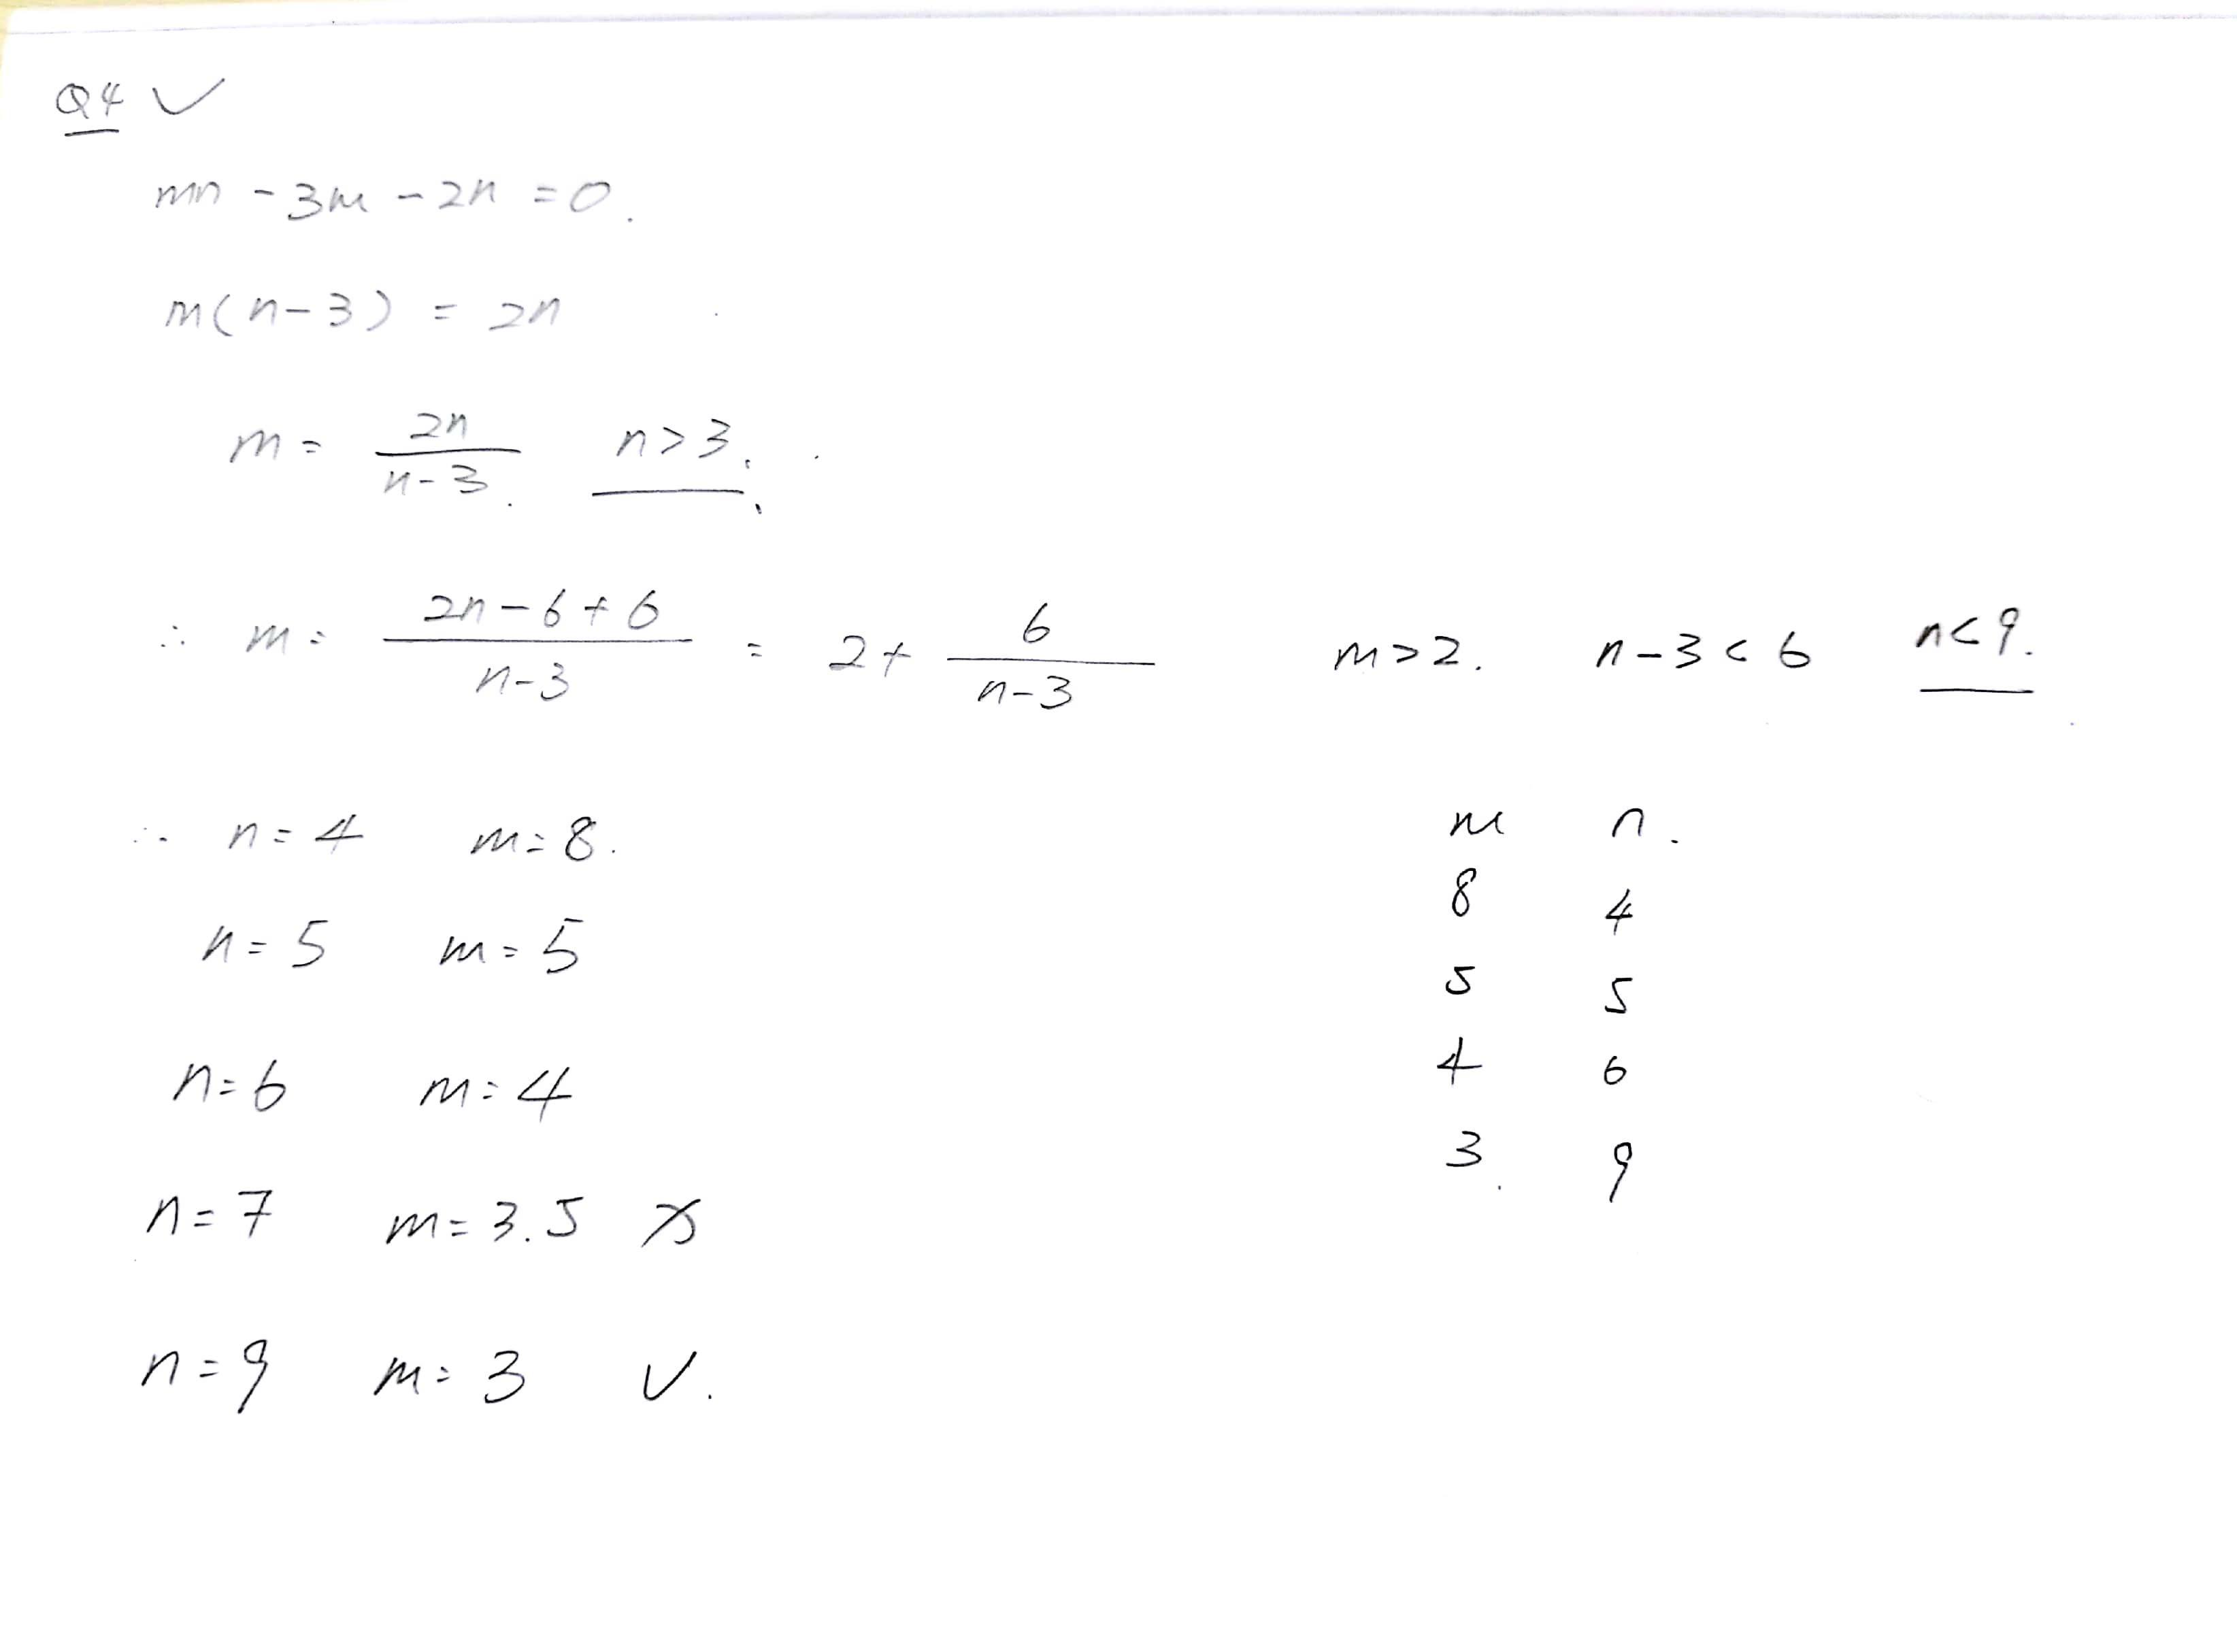 Q4 ✓
mn - 3m - 2n = 0.
m(n-3) = 2n
m = 2n/(n-3). n>3.
∴ m = (2n-6+6)/(n-3) = 2+ 6/(n-3) m>2. n-3<6 n<9.
∴ n=4 m=8.
n=5 m=5
n=6 m=4
n=7 m=3.5 ×
n=9 m=3 ✓.
m n.
8 4
5 5
4 6
3. 9